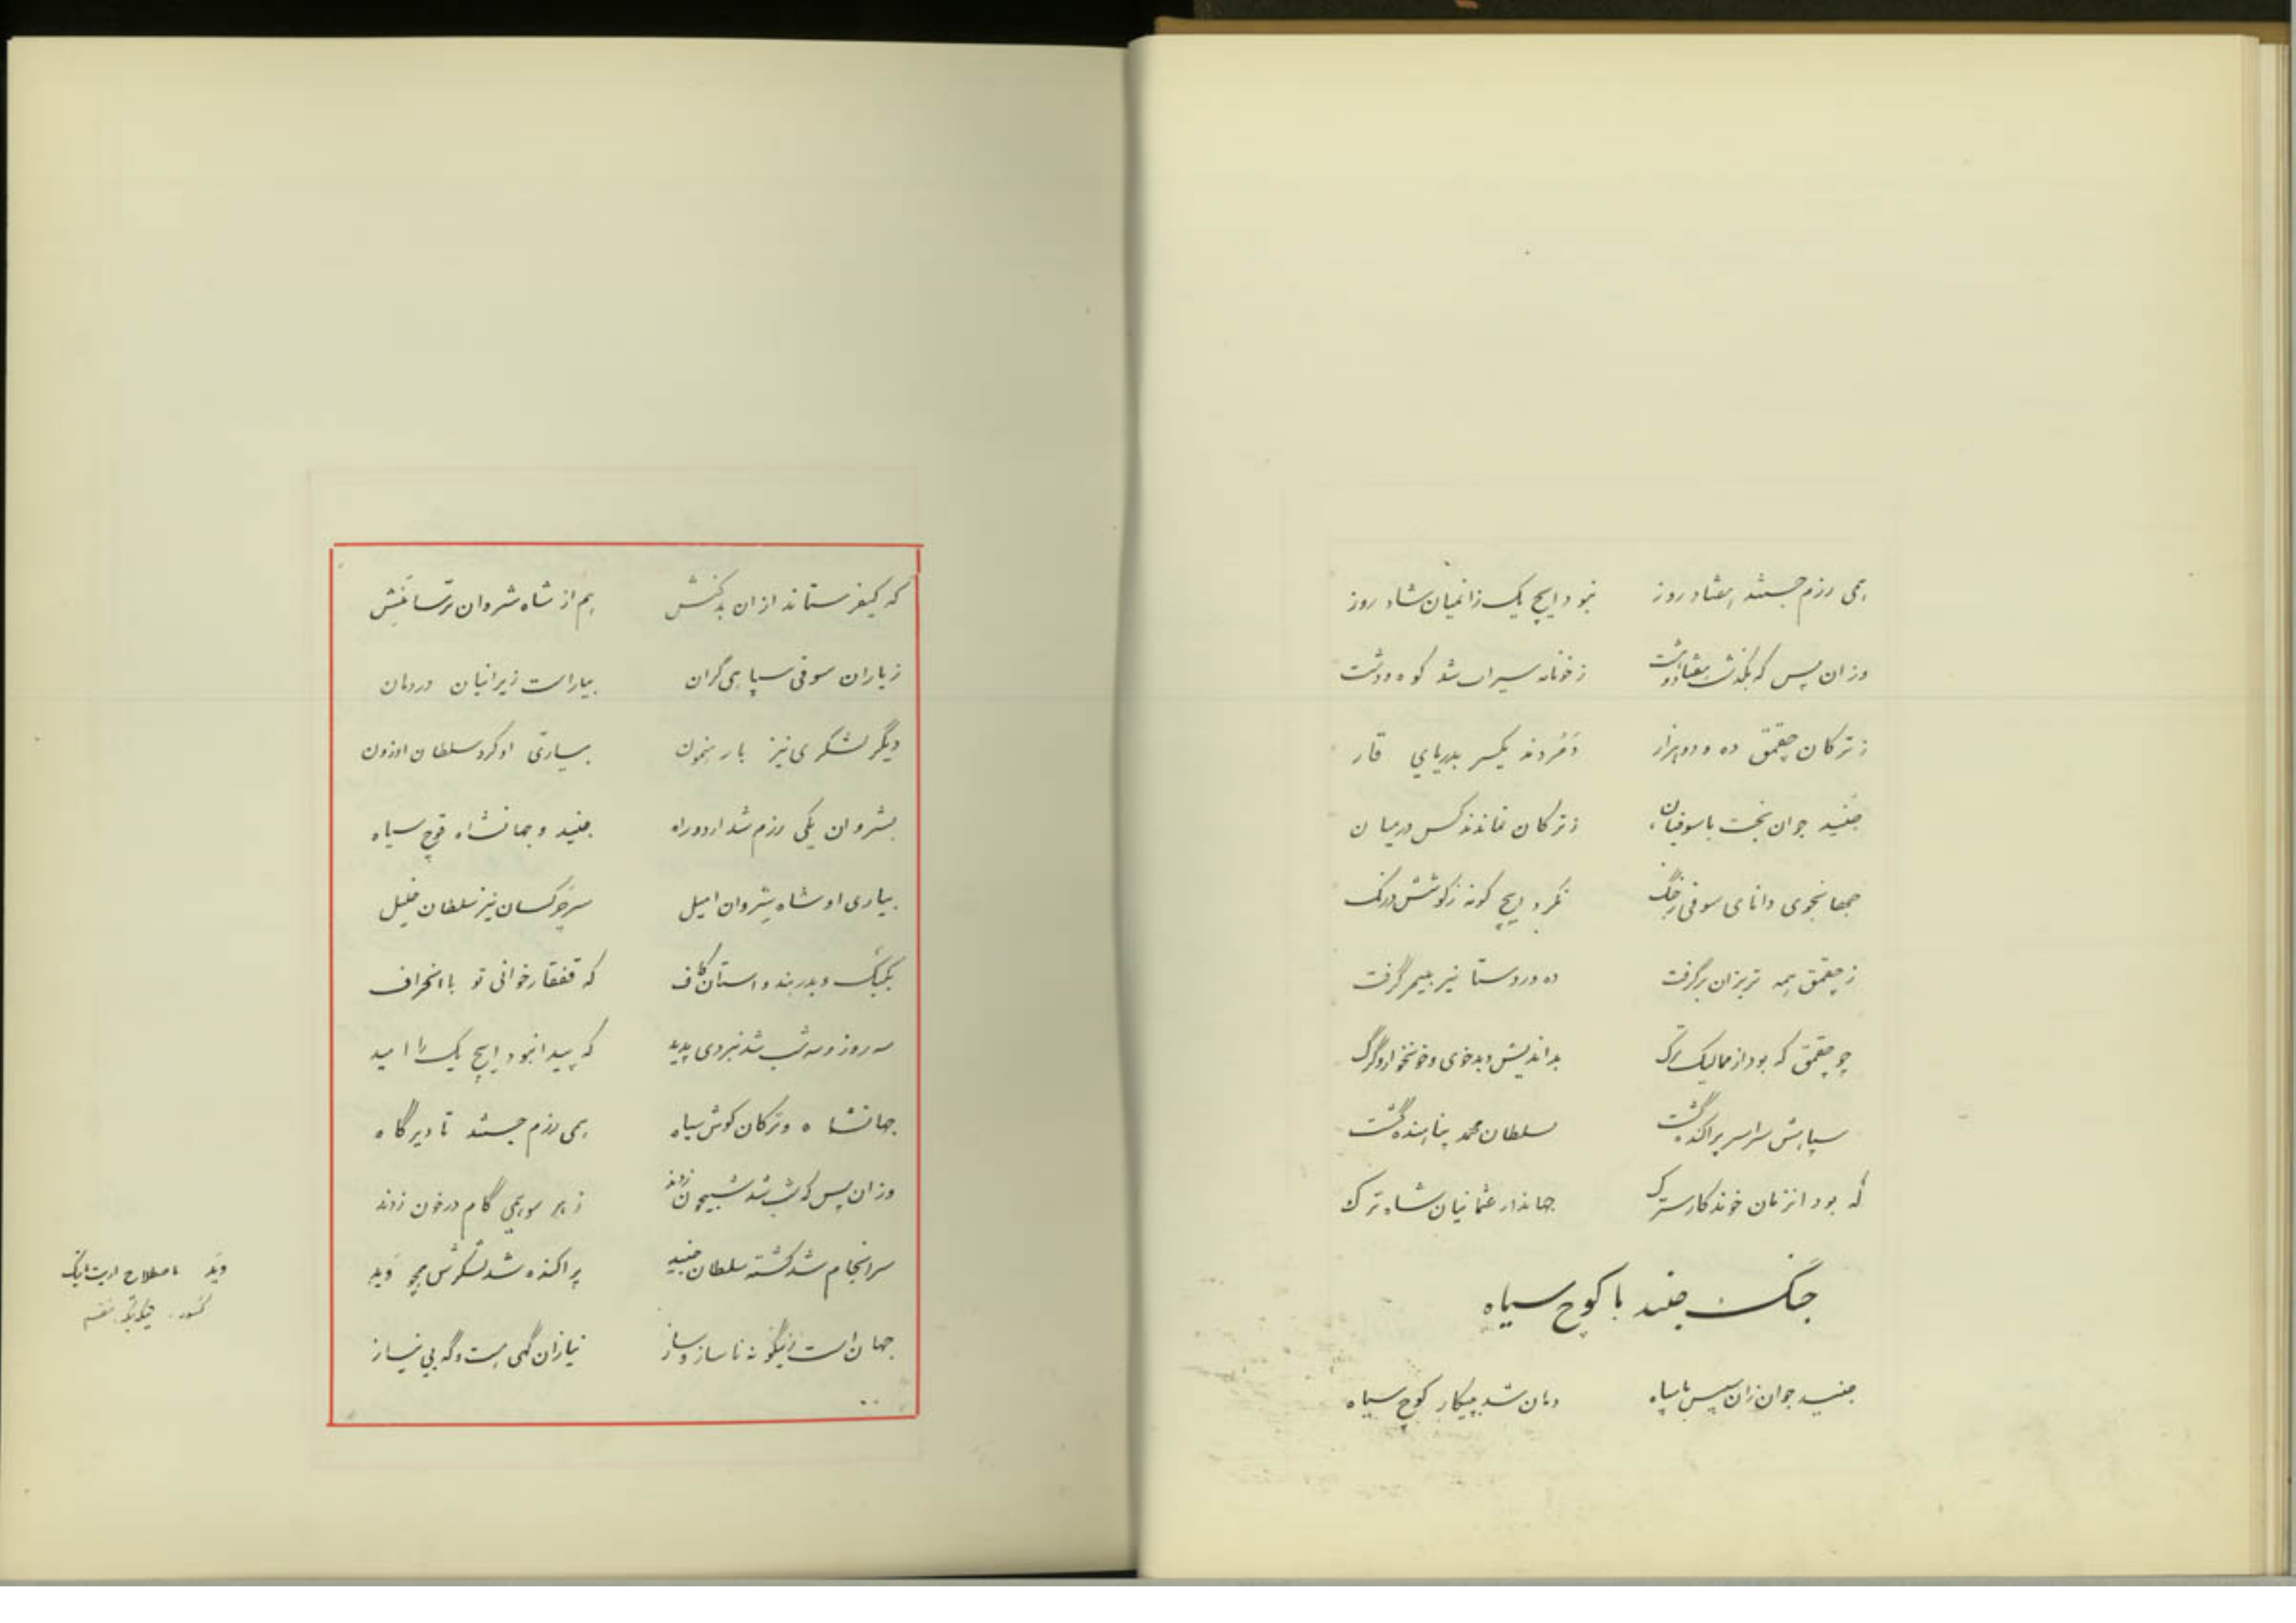 همی رزم جستند هفتاد روز نبود ایچ یک زانمیان شاد روز
وزان پس که بگذشت هفتاد و هشت ز خونابه سیراب شد کوه و دشت
ز ترکان چقمق ده و دو هزار دَمُردند یکسر بدریای قار
جنید جوان بخت با سوفیان ز ترکان نماندند کس در میان
جهانجوی دانای سوفی بجنگ نکرد ایچ گونه ز کوشش درنگ
ز چقمق همه تربزان برگرفت ده و روستا نیز بیمر گرفت
چو چقمق که بود از ممالیک ترک بداندیش و بدخوی و خونخوار و گرگ
سپاهش سراسر پراکنده گشت سلطان محمد پناهنده گشت
که بود انزمان خوندکار سترک جهاندار عثمانیان شاه ترک
جنگ جنید با کوچ سیاه
جنید جوان زان سپس با سپاه دمان شد بپیکار کوچ سیاه
که کیفر ستاند ازان بدکنش هم از شاه شروان ترسا
ز یاران سوفی سپاهی گران بیاراست ز ایرانیان دردمان
دیگر لشگری نیز با رهنمون بیاری او کرد سلطان اوزون
بشروان یکی رزم شد اردو راه جنید و جهانشاه قوچ سیاه
بیاری او شاه شروان امیل سر چرکسان نیز سلطان خلیل
و بدربند و استان کاف که قفقاز خوانی تو با انحراف
سه روز و سه شب شد نبردی پدید که پیدا نبود ایچ یک را امید
جهانشاه و ترکان کوش سیاه همی رزم جستند تا دیرگاه
وزان پس که شب شد شبیخون زدند ز هر سو همی گام در خون زدند
سرانجام شد کشته سلطان جنید پراکنده شد لشگرش همچو وَید
جهان است زینگونه ناساز و ساز نیازان گهی هست و گه بی نیاز
وَید باصطلاح